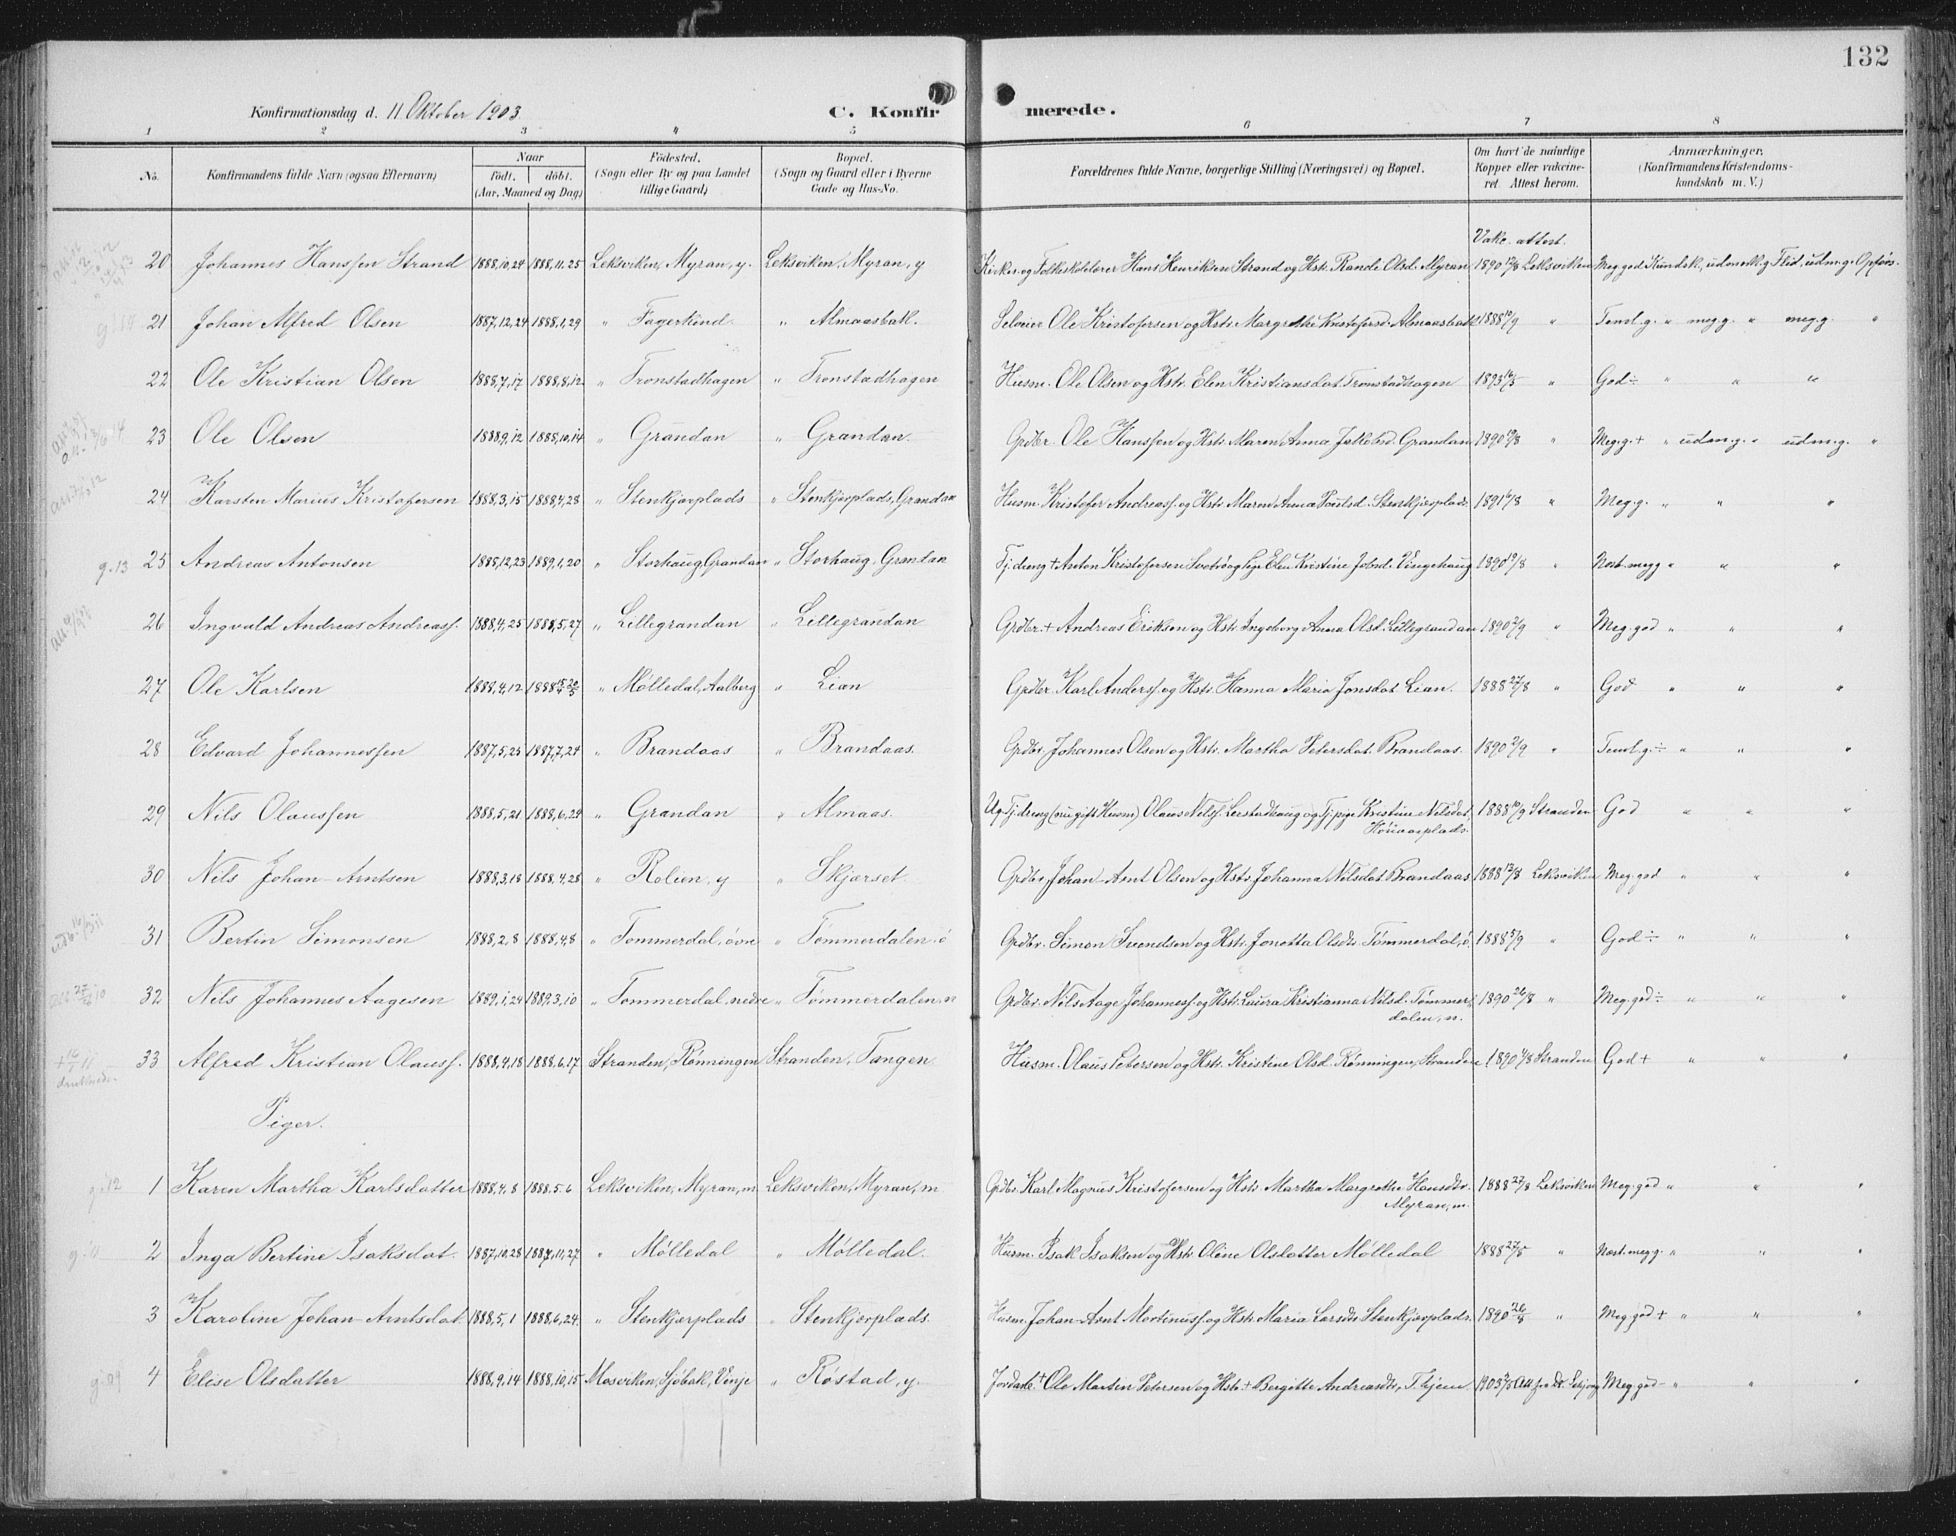 132
Konfirmationsdag d. 11 Oktober 1903
C. Konfirmerede.
1 2 3 4 5 6 7 8
No. Konfirmandens fulde Navn (ogsaa Efternavn) Naar født. døbt. (Aar, Maaned og Dag) Fødested. (Sogn eller By og paa Landet tillige Gaard) Bopæl. (Sogn og Gaard eller i Byerne Gade og Hus-No. Forældrenes fulde Navne, borgerlige Stilling (Næringsvei) og Bopæl. Om havt de naturlige Kopper eller vakcineret. Attest herom. Anmærkninger. (Konfirmandens Kristendomskundskab m. V.)
Vakc. attest.
20 Johannes Hanssen Strand 1888,10,24 1888,11,25 Leksviken, Myran, y. Leksviken, Myran, y Kirkes. og Folkskolelærer Hans Henriksen Strand og Hstr. Randi Olsd. Myran 1890 Leksviken Meg. god Kundsk., udmerk.g Flid, udm.g. Opførs.
21 Johan Alfred Olsen 1887,12,24 1888,1,29 " Fagerlind " Almaasbak. Selveier Ole Kristofersen og Hstr. Margrethe Kristofersd. Almaasbak 1888 10/9 " Teml.g. " meg.g. " meg.g. "
22 Ole Kristian Olsen 1888,7,17 1888,8,12 " Tronstadhagen " Tronstadhagen Husm. Ole Olsen og Hstr. Elen Kristiansdat. Tronstadhagen 1893 " God ÷ " " "
23 Ole Olsen 1888,9,12 1888,10,14 " Grandan " Grandan. Grdbr. Ole Hanssen og Hstr. Maren Anna Jakobsd. Grandan 1890 " Meg.g. + " udm.g. " udm.g. "
24 Karsten Marius Kristofersen 1888,3,15 1888,4,28 " Stenkjærplads " Stenkjærplads, Grandan Husm. Kristofer Andreass. og Hstr. Maren Anna Paulsd. Stenkjærplads 1891 " Meg.g. " " "
g. 13 25 Andreas Antonsen 1888,12,23 1889,1,20 " Storhaug, Grandan " Storhaug, Grandan Tjdreng + Anton Kristofersen og Elen Kristine Johnd. Vingehaug 1890 " Nost. megg " " "
26 Ingvald Andreas Andreass. 1888,4,25 1888,5,27 " Lillegrandan " Lillegrandan Grdbr. + Andreas Eriksen og Hstr. Ingeborg Anna Olsd. Lillegrandan 1890 2/9 " Meg. god " " "
27 Ole Karlsen 1888,4,12 " Mølledal, Aalberg " Lian Grdbr. Karl Anderss. og Hstr. Hanna Maria Jonsdat. Lian. 1888 27/8 " God " " "
28 Edvard Johannessen 1887,5,23 1887,7,24 " Brandaas " Brandaas. Grdbr. Johannes Olsen og Hstr. Martha Petersdat. Brandaas. 1890 2/9 " Teml.g. ÷ " " "
29 Nils Olaussen 1888,5,21 1888,6,24 " Grandan " Almaas. Ug. Tjdreng (nu gift Husm.) Olaus Nilss. Leerstadhaug og Tj.pige Kristine Nilsdat. 1888 10/9 Stranden God " " "
30 Nils Johan-Arntsen 1888,3,18 1888,4,28 " Rolien, y " Skjærset Grdbr. Johan-Arnt Olsen og Hstr. Johanna Nilsdat. Brandaas 1888 Leksviken Meg. god " " "
31 Bertin Simonsen 1888,2,8 1888,4,8 " Tømmerdal, øvre " Tømmerdalen, ø Grdbr. Simon Svendsen og Hstr. Jonetta Olsdr. Tømmerdal, ø. 1888 " God ÷ " " "
32 Nils Johannes Aagesen 1889,1,24 1889,3,10 " Tømmerdal, nedre " Tømmerdalen, n Grdbr. Nils Aage Johanness. og Hstr. Laura Kristianna Nilsd. Tømmerdalen, n. 1890 26/8 " Meg. god ÷ " " "
33 Alfred Kristian Olauss. 1888,4,18 1888,6,17 Stranden, Rønningen Stranden, Tangen. Husm. Olaus Petersen og Hstr. Kristine Olsd. Rønningen, Stranden 1890 Stranden God + " " "
Piger.
g. 12 1 Karen Martha Karlsdatter 1888,4,8 1888,5,6 Leksviken, Myran, m. Leksviken, Myran, m Grdbr. Karl Magnus Kristofersen og Hstr. Martha Margrethe Hansdtr. Myran, m. 1888 27/8 Leksviken Meg. god " " "
2 Inga Bertine Isaksdat. 1887,10,28 1887,11,27 " Mølledal " Mølledal. Husm. Isak Isaksen og Hstr. Oline Olsdatter Mølledal 1888 27/8 " Nost. megg. " " "
3 Karoline Johan-Arntsdat. 1888,5,1 1888,6,24 " Stenkjærplads " Stenkjærplads. Husm. Johan-Arnt Martinuss. og Hstr. Maria Larsdr. Stenkjærplads. 1890 26/8 " Meg. god + " " "
g. 09 4 Elise Olsdatter 1888,9,14 1888,10,15 Mosviken, Sjøbak, Venje " Røstad, y. + Ole Martin Petersen og Hstr. + Bergitte Andreasdtr. 1903 Att. fra Dr. Meg. god - " " "